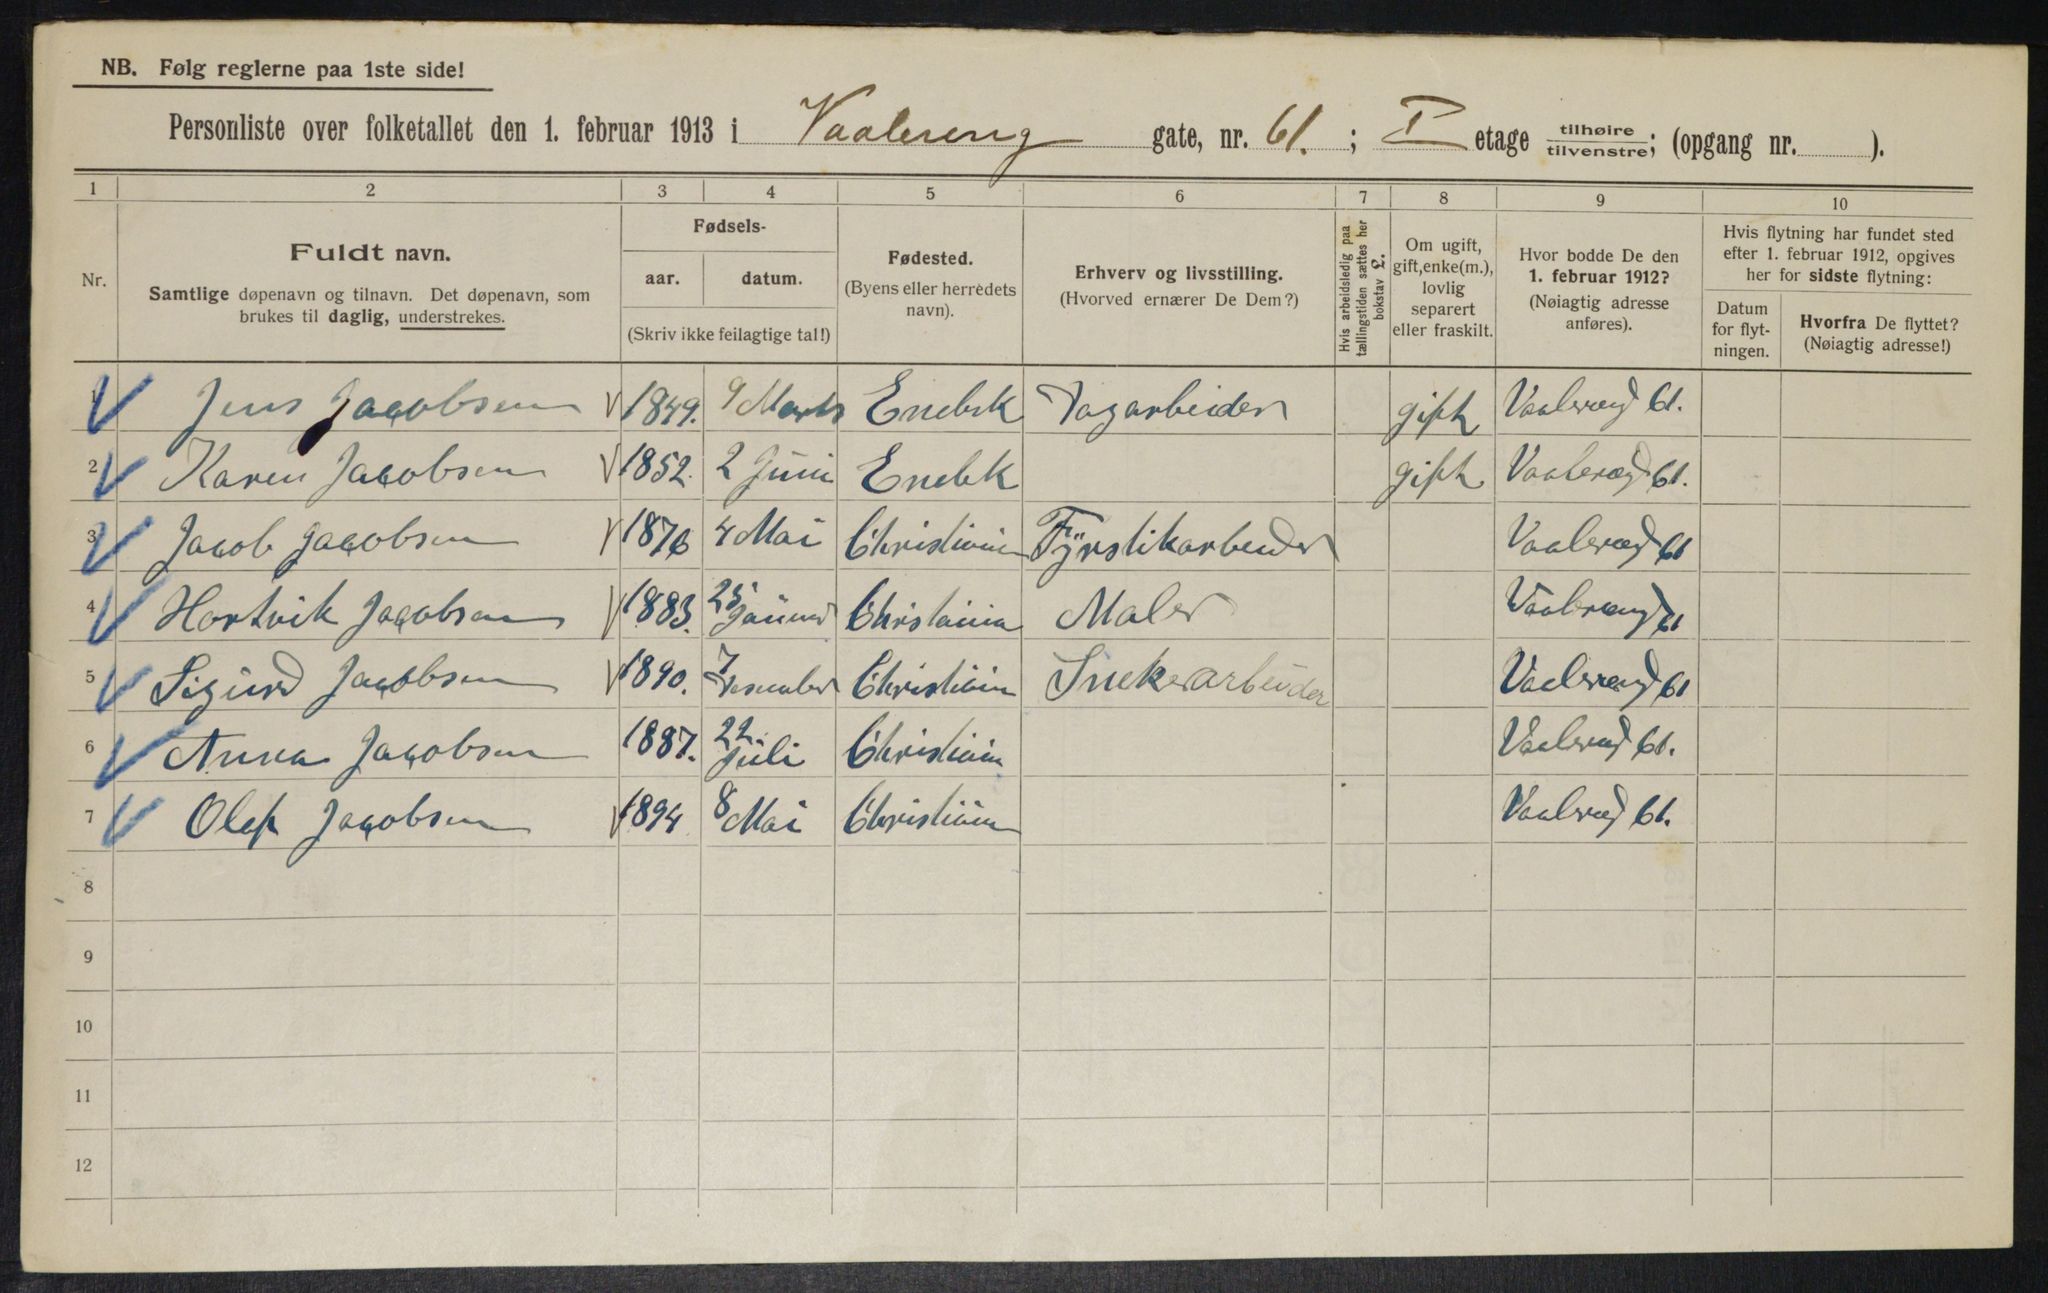 NB. Følg reglerne paa 1ste side!
Personliste over folketallet den 1. februar 1913 i Vaalereng gate, nr. 61. ; I etage tilhøire / tilvenstre ; (opgang nr. ).
1 2 3 4 5 6 7 8 9 10
Nr.
Fuldt navn.
Samtlige døpenavn og tilnavn. Det døpenavn, som
brukes til daglig, understrekes.
Fødsels-
aar. datum.
(Skriv ikke feilagtige tal!)
Fødested.
(Byens eller herredets
navn).
Erhverv og livsstilling.
(Hvorved ernærer De Dem?)
Hvis arbeidsledig paa
tællingstiden sættes her
bokstav L.
Om ugift,
gift, enke(m.),
lovlig
separert
eller fraskilt.
Hvor bodde De den
1. februar 1912?
(Nøiagtig adresse
anføres).
Hvis flytning har fundet sted
efter 1. februar 1912, opgives
her for sidste flytning:
Datum
for flyt-
ningen.
Hvorfra De flyttet?
(Nøiagtig adresse!)
1 Jens Jacobsen 1849. 9 Marts Enebk Dagarbeider gift Vaalereng 61.
2 Karen Jacobsen 1852. 2 Juni Enebk gift Vaalereng 61.
3 Jacob Jacobsen 1876 4 Mai Christiania Fyrstikarbeider Vaalereng 61
4 Hartvik Jacobsen 1883. 25 Januar Christiania Maler Vaalereng 61
5 Sigurd Jacobsen 1890. 7 Christiania Snekerarbeider Vaalereng 61
6 Anna Jacobsen 1887. 22. Juli Christiania Vaalereng 61.
7 Olaf Jacobsen 1894 8 Mai Christiania Vaalereng 61.
8
9
10
11
12